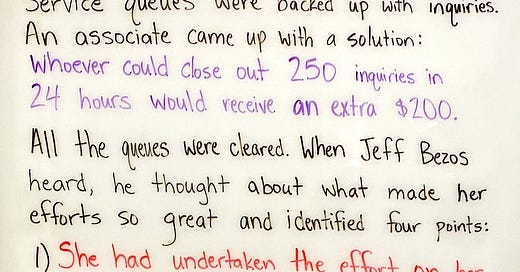 Service queues were backed up with inquiries.
An associate came up with a solution:
Whoever could close out 250 inquiries in
24 hours would receive an extra $200.
All the queues were cleared. When Jeff Bezos
heard, he thought about what made her
efforts so great and identified four points:
1) She had undertaken the effort on her